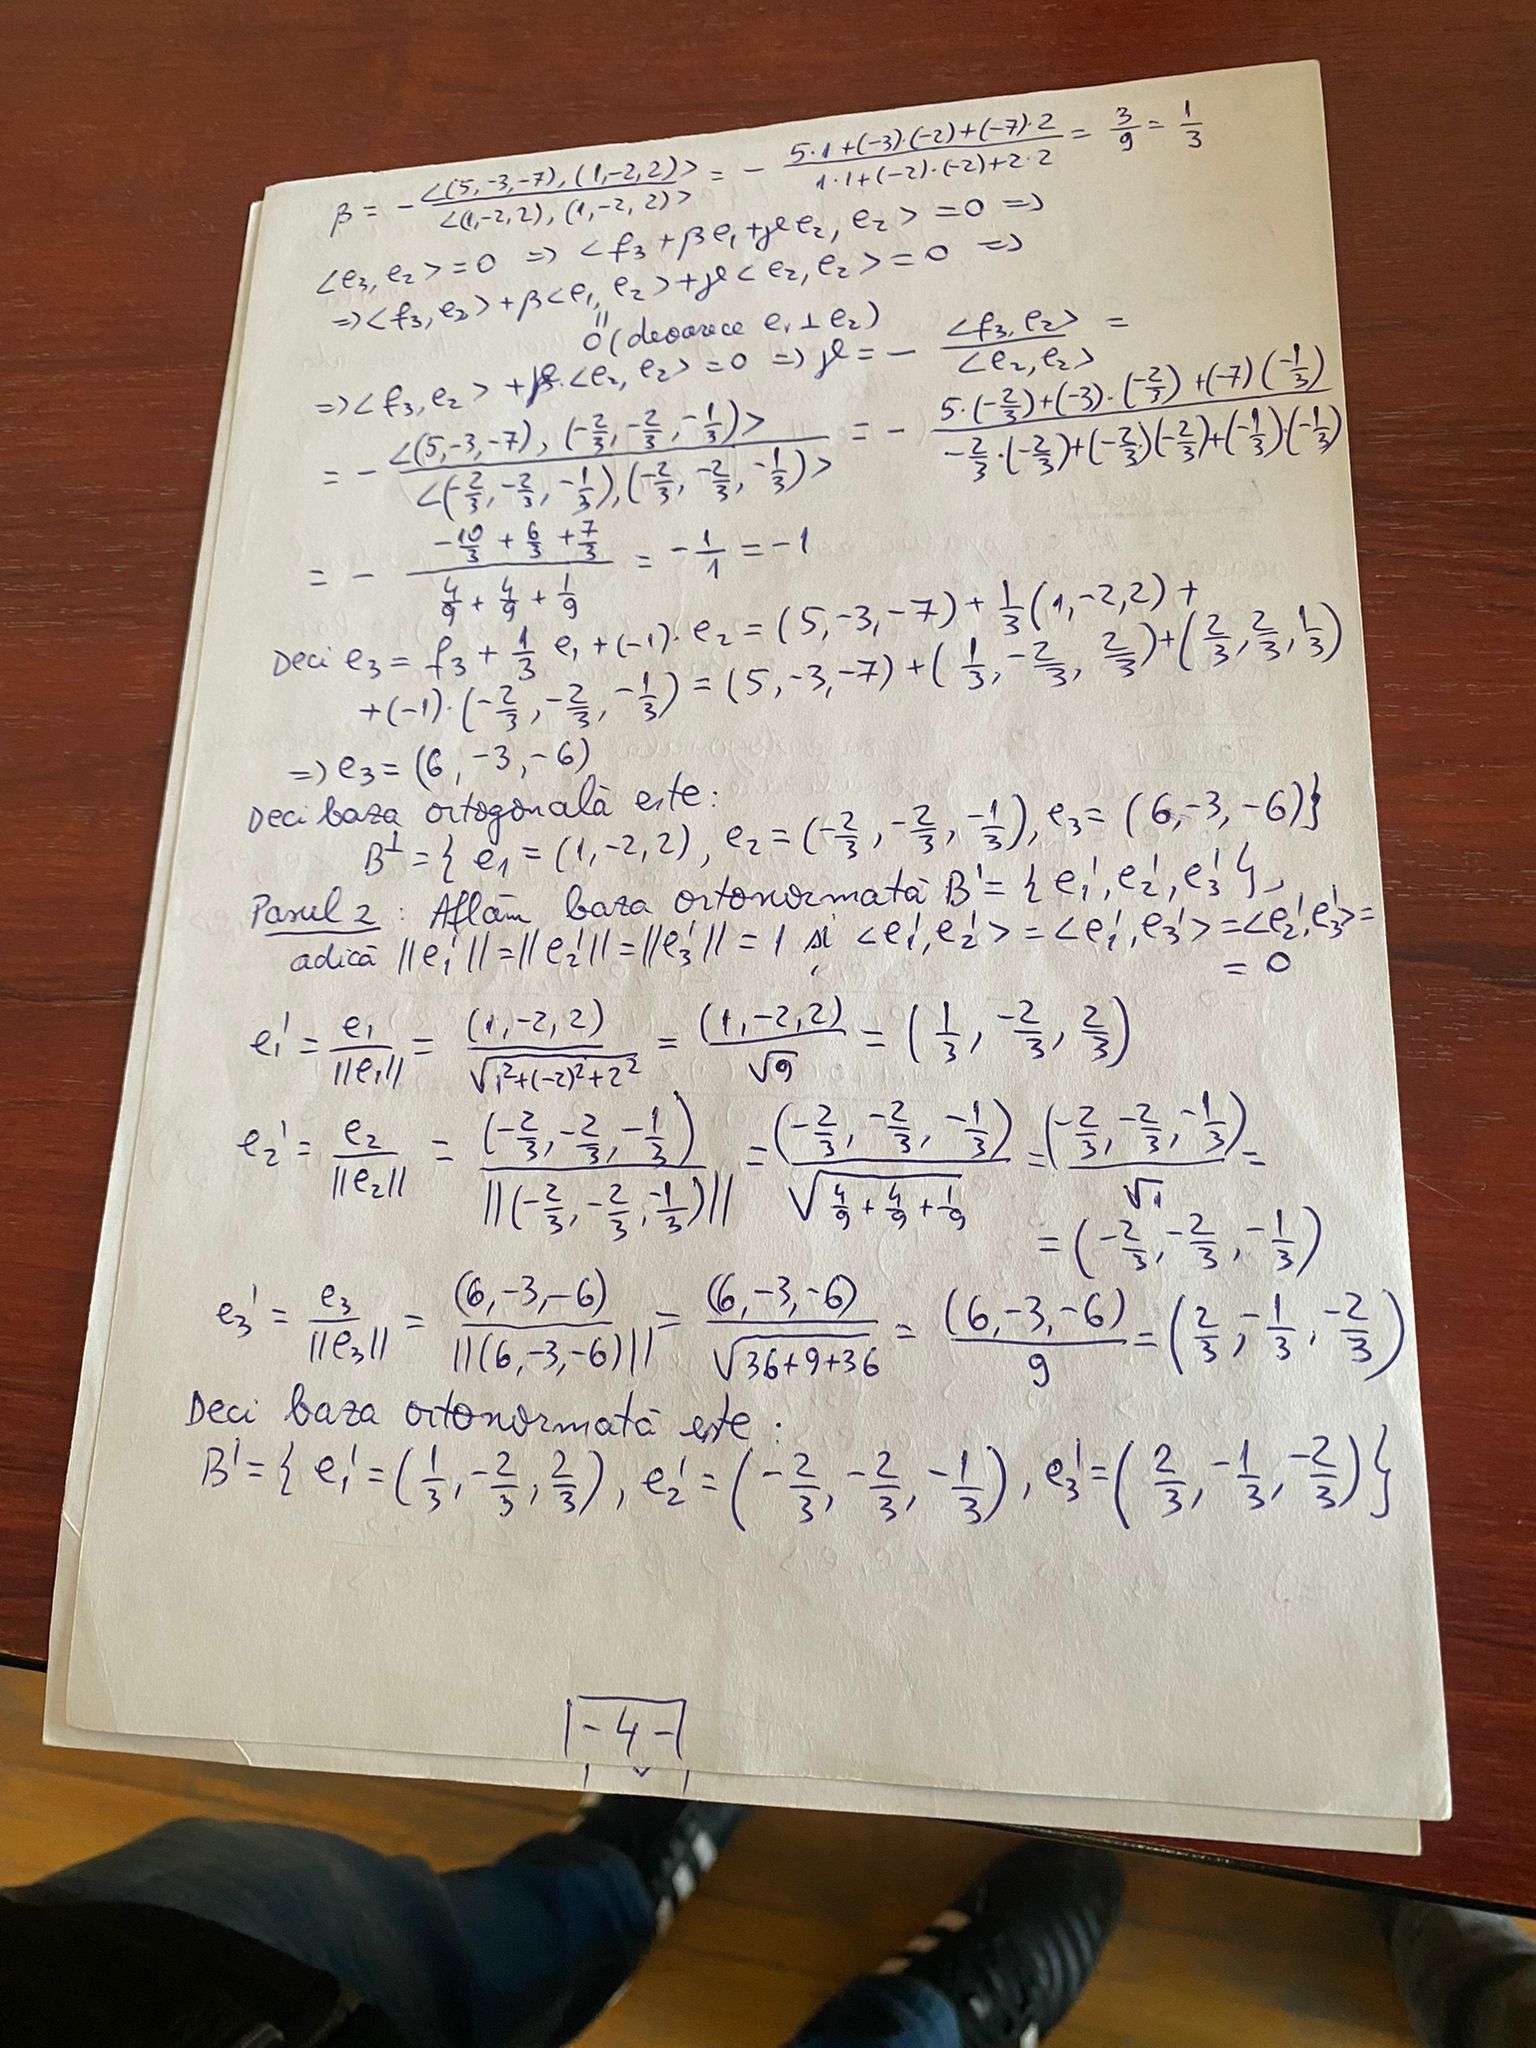 β = - <(5,-3,-7), (1,-2,2)> / <(1,-2,2), (1,-2,2)> = - (5·1+(-3)·(-2)+(-7)·2) / (1·1+(-2)·(-2)+2·2) = 3/9 = 1/3
<e₃, e₂> = 0 => <f₃ + βe₁ + γe₂, e₂> = 0 =>
=> <f₃, e₂> + β<e₁, e₂> + γ<e₂, e₂> = 0 =>
0 (deoarece e₁ ⊥ e₂)
=> <f₃, e₂> + γ·<e₂, e₂> = 0 => γ = - <f₃, e₂> / <e₂, e₂> =
= - <(5,-3,-7), (-2/3, -2/3, -1/3)> / <(-2/3, -2/3, -1/3), (-2/3, -2/3, -1/3)> = - (5·(-2/3)+(-3)·(-2/3)+(-7)(-1/3)) / (-2/3·(-2/3)+(-2/3)(-2/3)+(-1/3)·(-1/3))
= - (-10/3 + 6/3 + 7/3) / (4/9 + 4/9 + 1/9) = - 1/1 = -1
Deci e₃ = f₃ + 1/3 e₁ + (-1)·e₂ = (5,-3,-7) + 1/3 (1,-2,2) +
+(-1)·(-2/3, -2/3, -1/3) = (5,-3,-7) + (1/3, -2/3, 2/3) + (2/3, 2/3, 1/3)
=> e₃ = (6, -3, -6)
Deci baza ortogonală este:
B⊥ = { e₁ = (1,-2,2), e₂ = (-2/3, -2/3, -1/3), e₃ = (6,-3,-6)}
Pasul 2: Aflăm baza ortonormată B' = {e₁', e₂', e₃'},
adică ||e₁'|| = ||e₂'|| = ||e₃'|| = 1 și <e₁', e₂'> = <e₁', e₃'> = <e₂', e₃'> =
= 0
e₁' = e₁/||e₁|| = (1,-2,2)/√(1²+(-2)²+2²) = (1,-2,2)/√9 = (1/3, -2/3, 2/3)
e₂' = e₂/||e₂|| = (-2/3, -2/3, -1/3)/||(-2/3, -2/3, -1/3)|| = (-2/3, -2/3, -1/3)/√(4/9+4/9+1/9) = (-2/3, -2/3, -1/3)/√1 =
= (-2/3, -2/3, -1/3)
e₃' = e₃/||e₃|| = (6,-3,-6)/||(6,-3,-6)|| = (6,-3,-6)/√(36+9+36) = (6,-3,-6)/9 = (2/3, -1/3, -2/3)
Deci baza ortonormată este:
B' = { e₁' = (1/3, -2/3, 2/3), e₂' = (-2/3, -2/3, -1/3), e₃' = (2/3, -1/3, -2/3)}
-4-